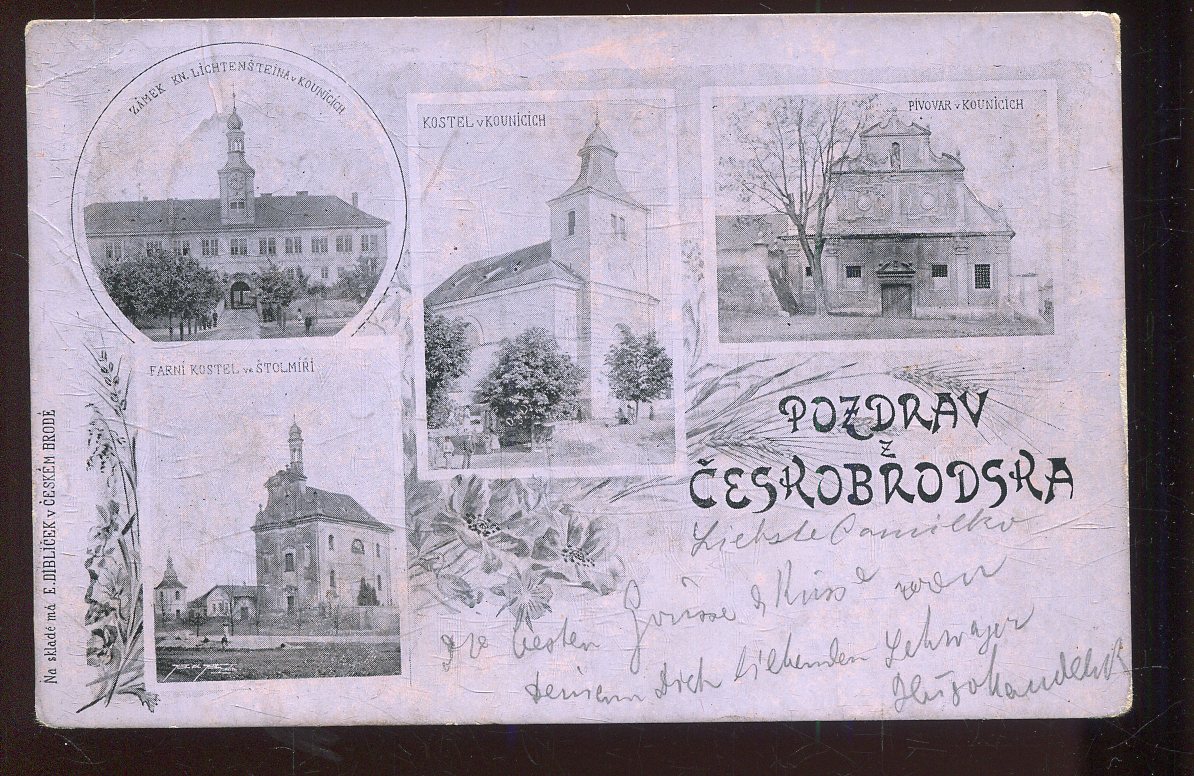 ZÁMEK KN. LICHTENŠTEINA v KOUNICÍCH
KOSTEL v KOUNICÍCH
PIVOVAR v KOUNICÍCH
FARNÍ KOSTEL ve ŠTOLMÍŘI
POZDRAV
Z
ČESKOBRODSKA
Na skladě má E. DIBLÍČEK v ČESKÉM BRODĚ
Liebste
Die besten Grüsse & Küsse von
Deinem Dich liebenden Schwager